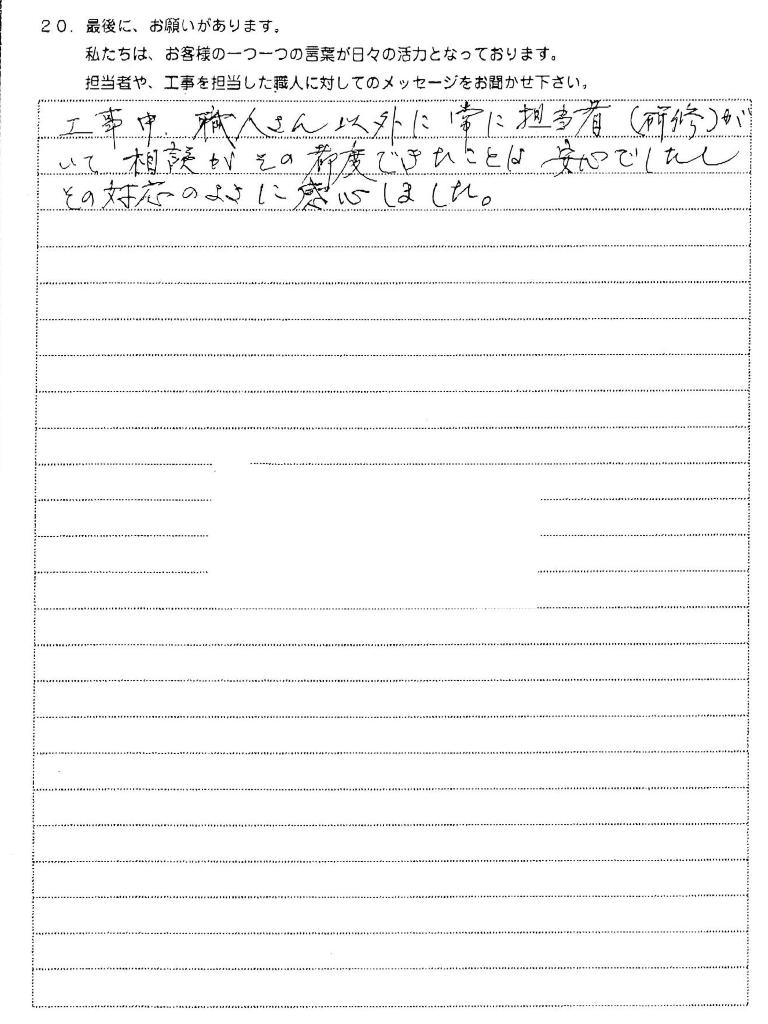 20. 最後に、お願いがあります。
私たちは、お客様の一つ一つの言葉が日々の活力となっております。
担当者や、工事を担当した職人に対してのメッセージをお聞かせ下さい。
工事中、職人さん以外に常に担当者(研修)が
いて相談がその都度できたことは安心でしたし
その対応のよさに感心しました。